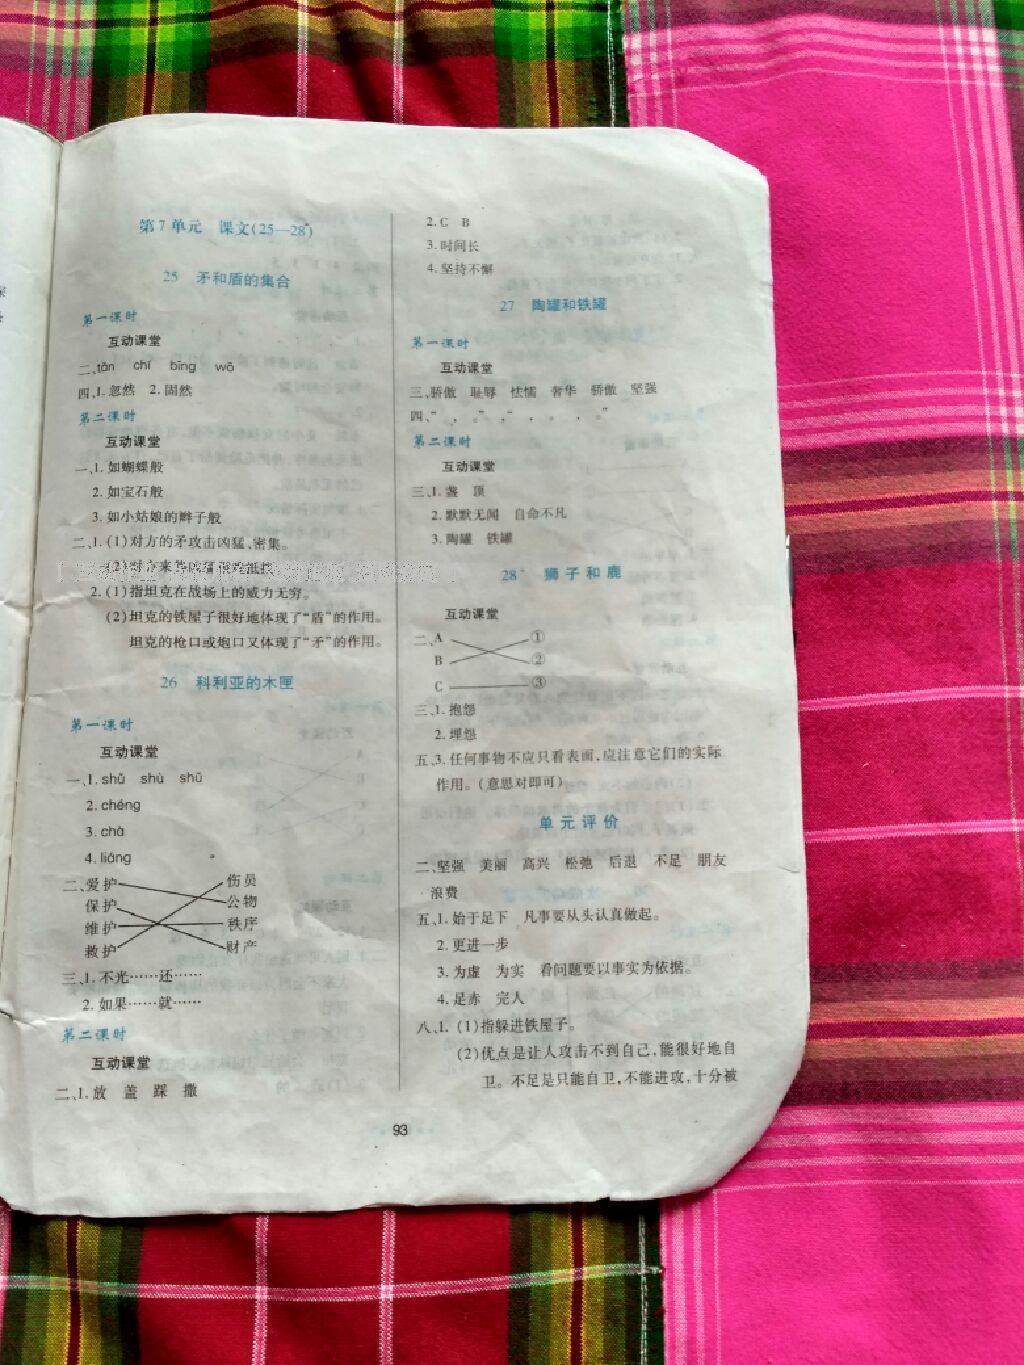 第7单元　课文(25—28*)
25　矛和盾的集合
第一课时
互动课堂
二、tǎn　chí　bīng　wō
四、1. 忽然　2. 固然
第二课时
互动课堂
一、1. 如蝴蝶般
2. 如宝石般
3. 如小姑娘的辫子般
二、1. (1) 对方的矛攻击凶猛、密集。
(2) 对方来势
2. (1) 指坦克在战场上的威力无穷。
(2) 坦克的铁屋子很好地体现了“盾”的作用。
坦克的枪口或炮口又体现了“矛”的作用。
26　科利亚的木匣
第一课时
互动课堂
一、1. shǔ　shù　shū
2. chéng
3. chà
4. liáng
二、爱护　伤员
保护　公物
维护　秩序
救护　财产
三、1. 不光……还……
2. 如果……就……
第二课时
互动课堂
二、1. 放　盖　踩　撒
2. C　B
3. 时间长
4. 坚持不懈
27　陶罐和铁罐
第一课时
互动课堂
三、骄傲　耻辱　怯懦　奢华　骄傲　坚强
四、“　，　。”　“　，　。　，　。”
第二课时
互动课堂
三、1. 盏　顶
2. 默默无闻　自命不凡
3. 陶罐　铁罐
28*　狮子和鹿
互动课堂
二、A　①
B　②
C　③
三、1. 抱怨
2. 埋怨
五、3. 任何事物不应只看表面,应注意它们的实际
作用。(意思对即可)
单元评价
二、坚强　美丽　高兴　松弛　后退　不足　朋友
浪费
五、1. 始于足下　凡事要从头认真做起。
2. 更进一步
3. 为虚　为实　看问题要以事实为依据。
4. 足赤　完人
八、1. (1) 指躲进铁屋子。
(2) 优点是让人攻击不到自己,能很好地自
卫。不足是只能自卫,不能进攻,十分被
93